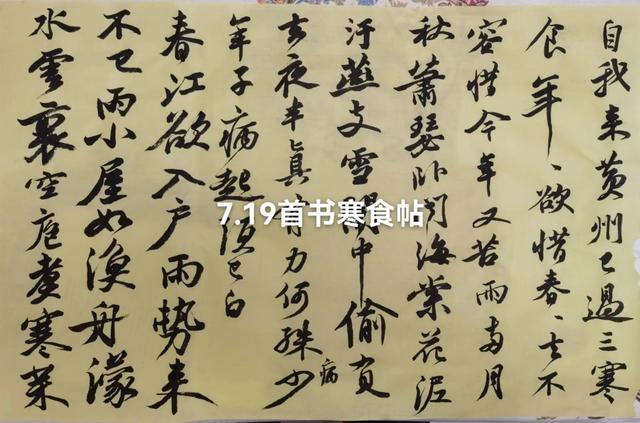 自我来黄州已過三寒
食年、欲惜春、去不
容惜今年又苦雨兩月
秋蕭瑟卧聞海棠花泥
汙燕支雪闇中偷負
去夜半真有力何殊少
病
年子病起須已白
春江欲入户雨勢来
不已雨小屋如漁舟濛
水雲裏空庖煮寒菜
7.19首书寒食帖